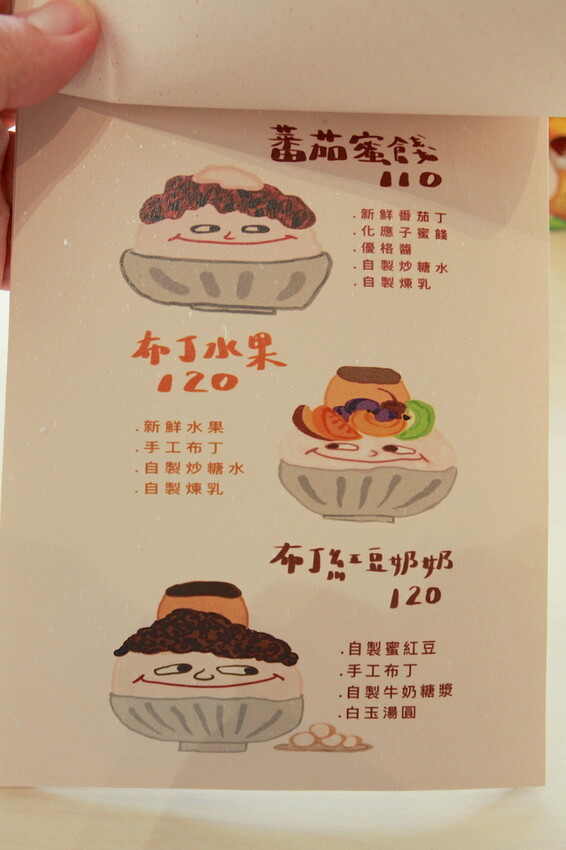 蕃茄蜜餞
110
.新鮮番茄丁
.化應子蜜餞
.優格醬
.自製炒糖水
.自製煉乳
布丁水果
120
.新鮮水果
.手工布丁
.自製炒糖水
.自製煉乳
布丁紅豆奶奶
120
.自製蜜紅豆
.手工布丁
.自製牛奶糖漿
.白玉湯圓